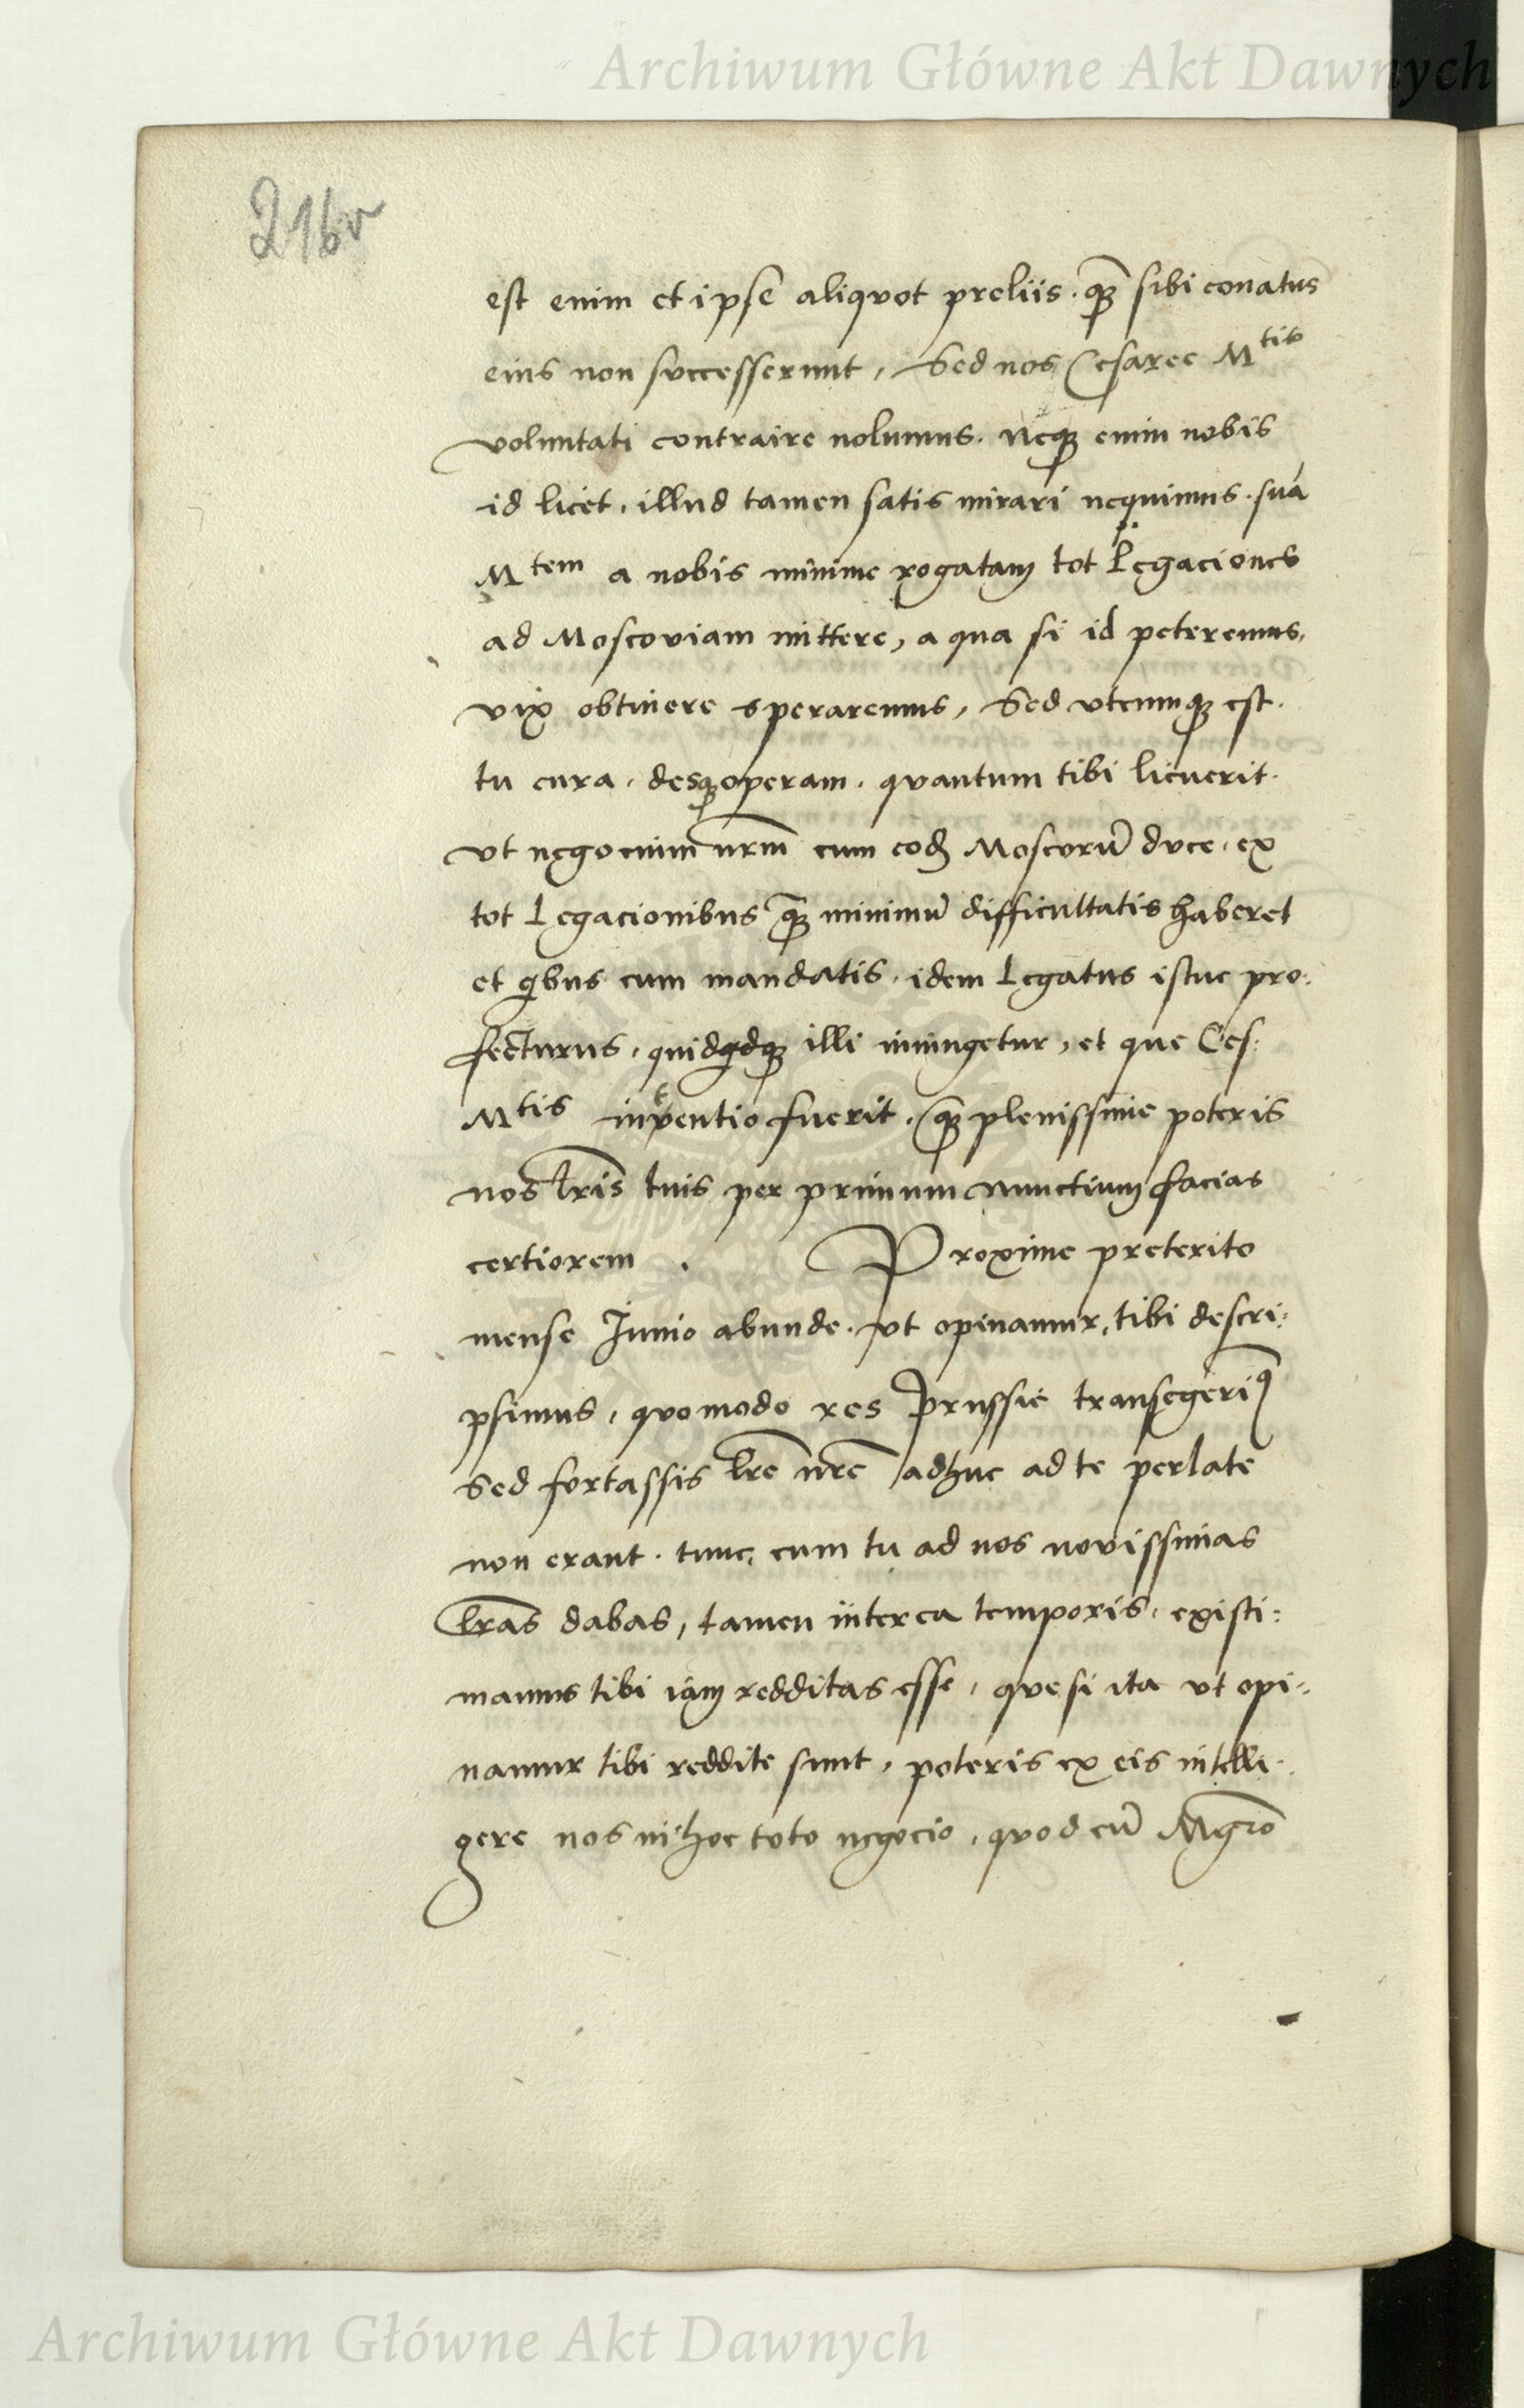 Archiwum Główne Akt Dawnych
216v
est enim et ipse aliquot preliis. qꝫ̄ sibi conatus
eius non successerunt, Sed nos Cesaree Mtis
voluntati contraire nolumus. neqꝫ enim nobis
id licet, illud tamen satis mirari nequimus. suā
Mtem a nobis minime rogatam tot Legaciones
ad Moscoviam mittere, a qua si id peteremus,
vix obtinere speraremus, Sed utcumqꝫ est.
tu cura, desqꝫ operam, quantum tibi licuerit.
ut negocium nr̄m cum eodē Moscorū duce, ex
tot Legacionibus qꝫ̄ minimū difficultatis haberet
et qibus cum mandatis, idem Legatus istuc pro:
fecturus, quidqdqꝫ illi iniungetur, et que Ces:
Mtis intentio fuerit, qꝫ̄ plenissime poteris
nos lr̄is tuis per primum nunctium facias
certiorem . Proxime preterito
mense Junio abunde, ut opinamur, tibi descri:
psimus, quomodo res Prussie transegerimꝰ
sed fortassis lr̄e nr̄e adhuc ad te perlate
non erant, tunc, cum tu ad nos novissimas
lr̄as dabas, tamen interea temporis, existi:
mamus tibi iam redditas esse, que si ita ut opi:
namur tibi reddite sunt, poteris ex eis intelli:
gere nos in hoc toto negocio, quod cū Mgr̄o
Archiwum Główne Akt Dawnych